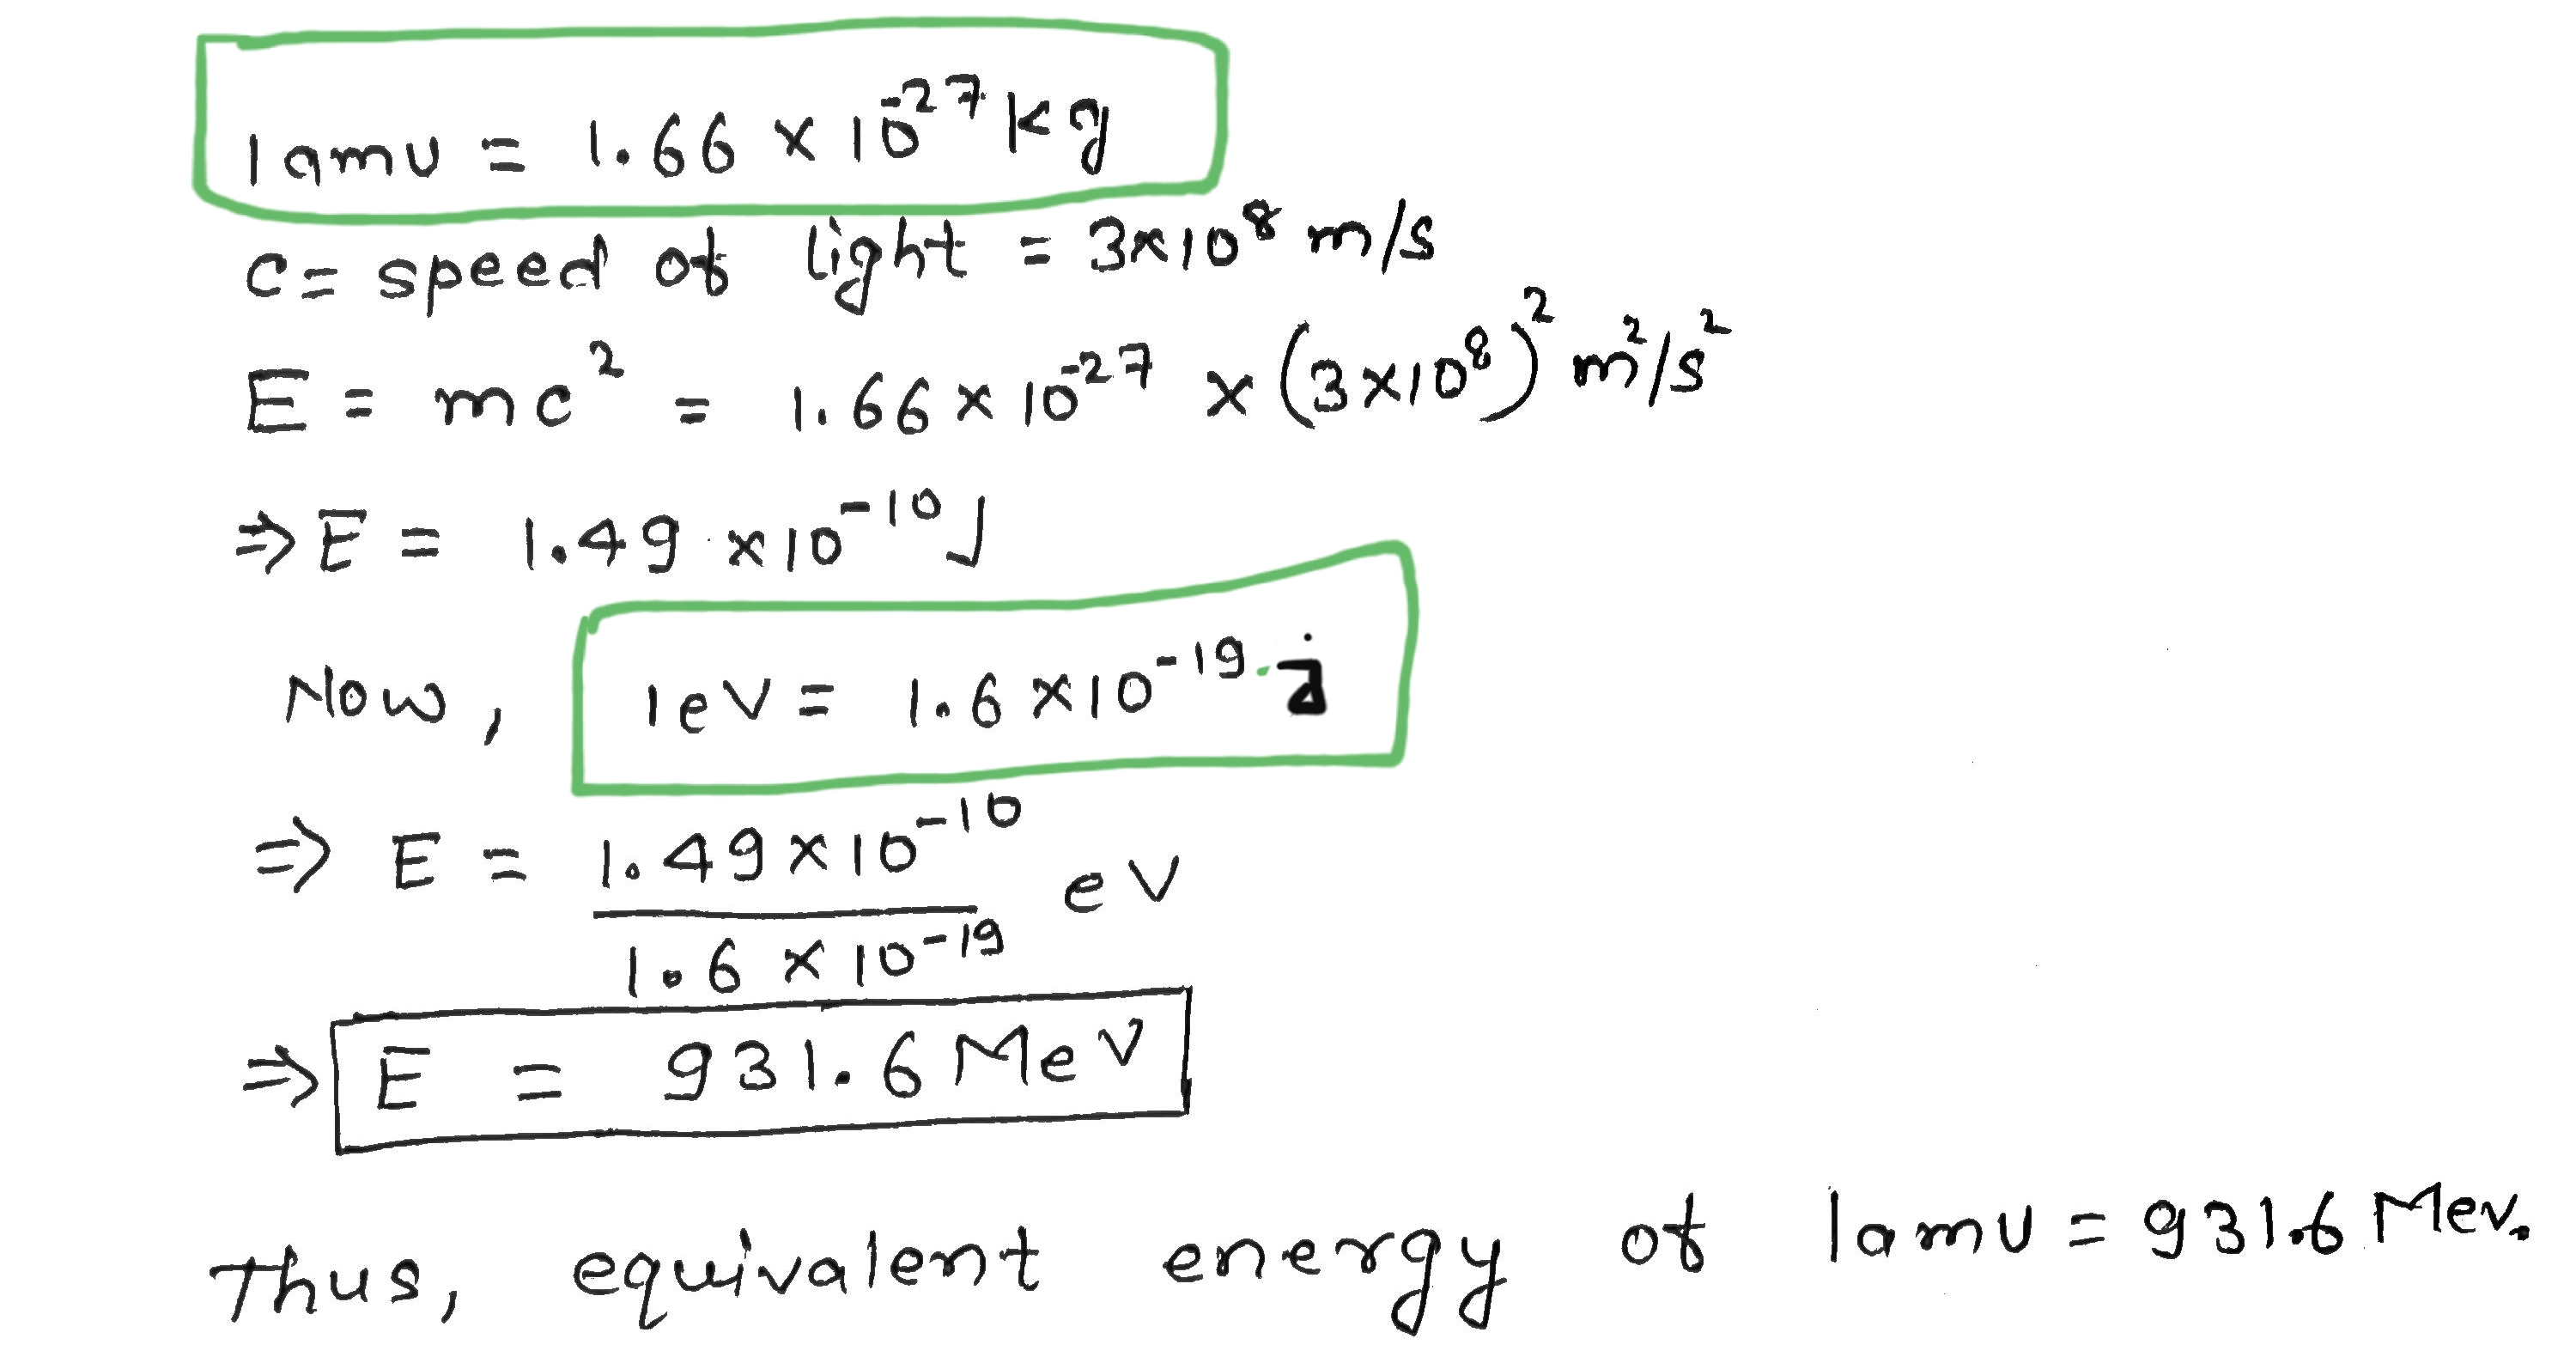 1 amu = 1.66 × 10⁻²⁷ Kg
C = speed of light = 3×10⁸ m/s
E = mc² = 1.66 × 10⁻²⁷ × (3×10⁸)² m²/s²
⇒ E = 1.49 ×10⁻¹⁰ J
Now, 1eV = 1.6 ×10⁻¹⁹ J
⇒ E = 1.49×10⁻¹⁰ / 1.6 × 10⁻¹⁹ eV
⇒ E = 931.6 MeV
Thus, equivalent energy of 1amu = 931.6 Mev.